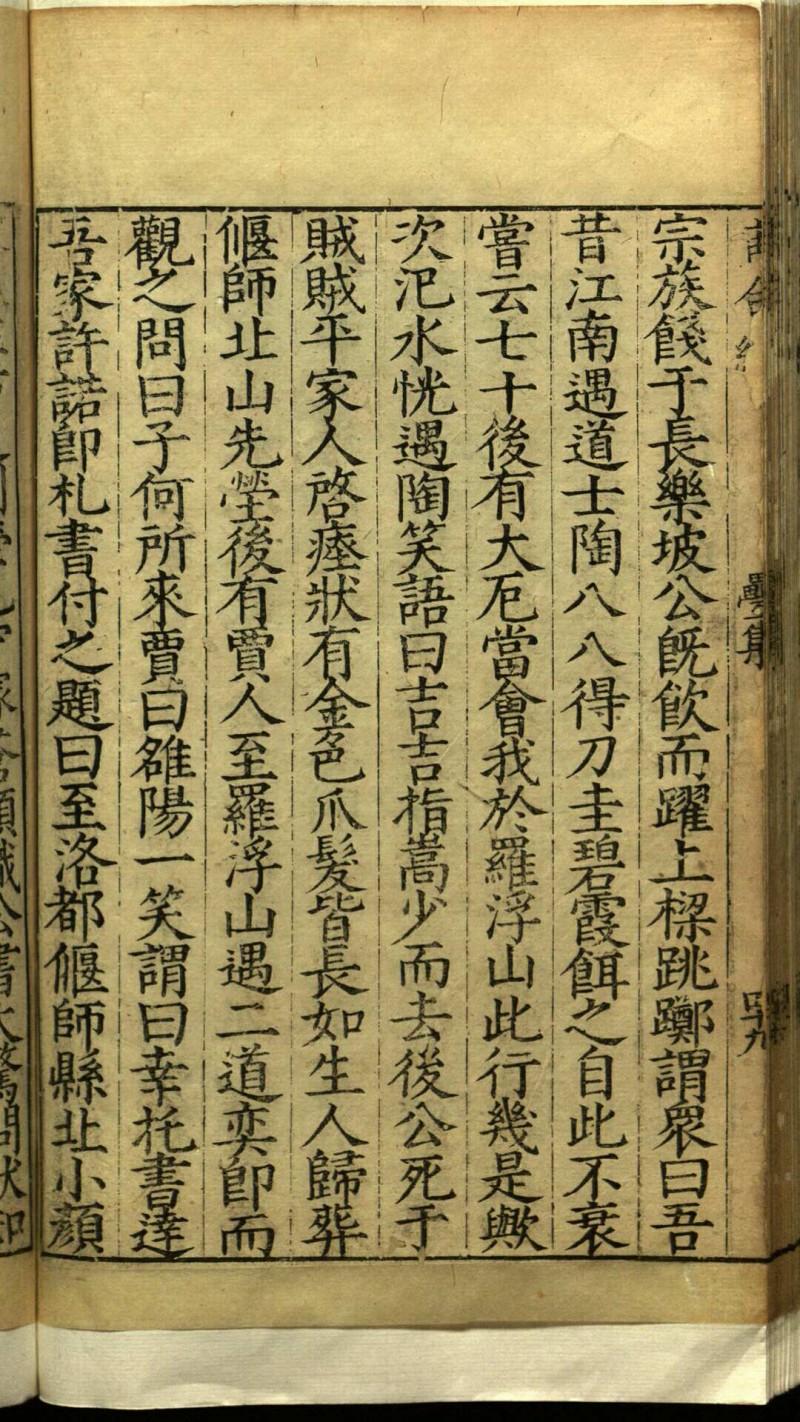 宗族餞于長樂坡公旣飲而躍上樑跳躑謂衆曰吾
昔江南遇道士陶八八得刀圭碧霞餌之自此不衰
嘗云七十後有大厄當會我於羅浮山此行幾是歟
次汜水恍遇陶笑語曰吉吉指嵩少而去後公死于
賊賊平家人啓瘞狀有金色爪髮皆長如生人歸葬
偃師北山先塋後有賈人至羅浮山遇二道奕卽而
觀之問曰子何所來賈曰雒陽一笑謂曰幸托書達
吾家許諾卽札書付之題曰至洛都偃師縣北小顏